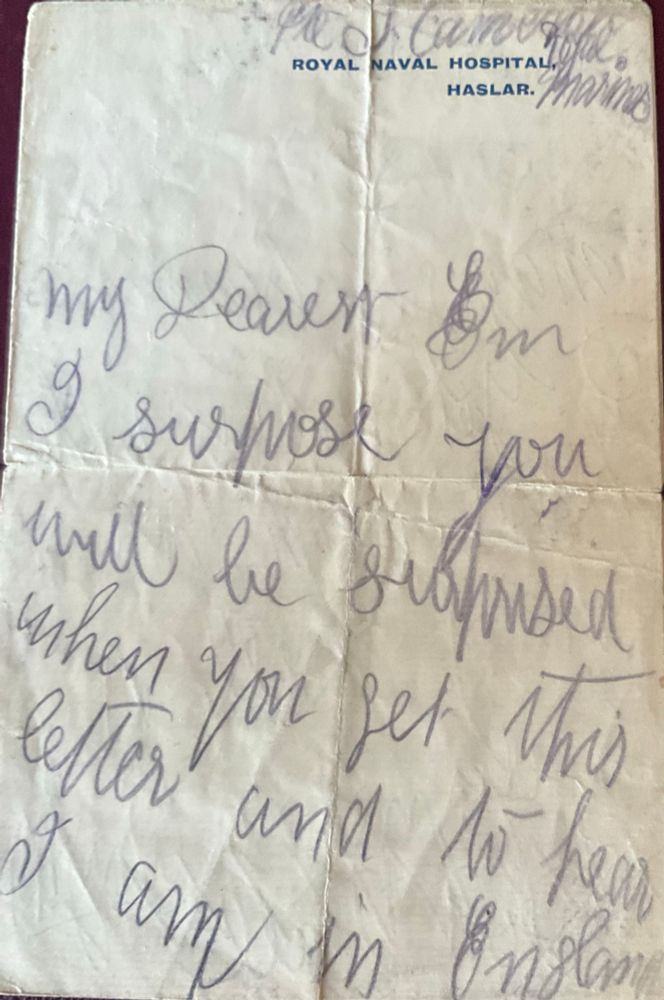 Pte J. Cameron
Royal
ROYAL NAVAL HOSPITAL,
Marines
HASLAR.
My Dearest Em
I surpose you
will be surprised
when you get this
letter and to hear
I am in England